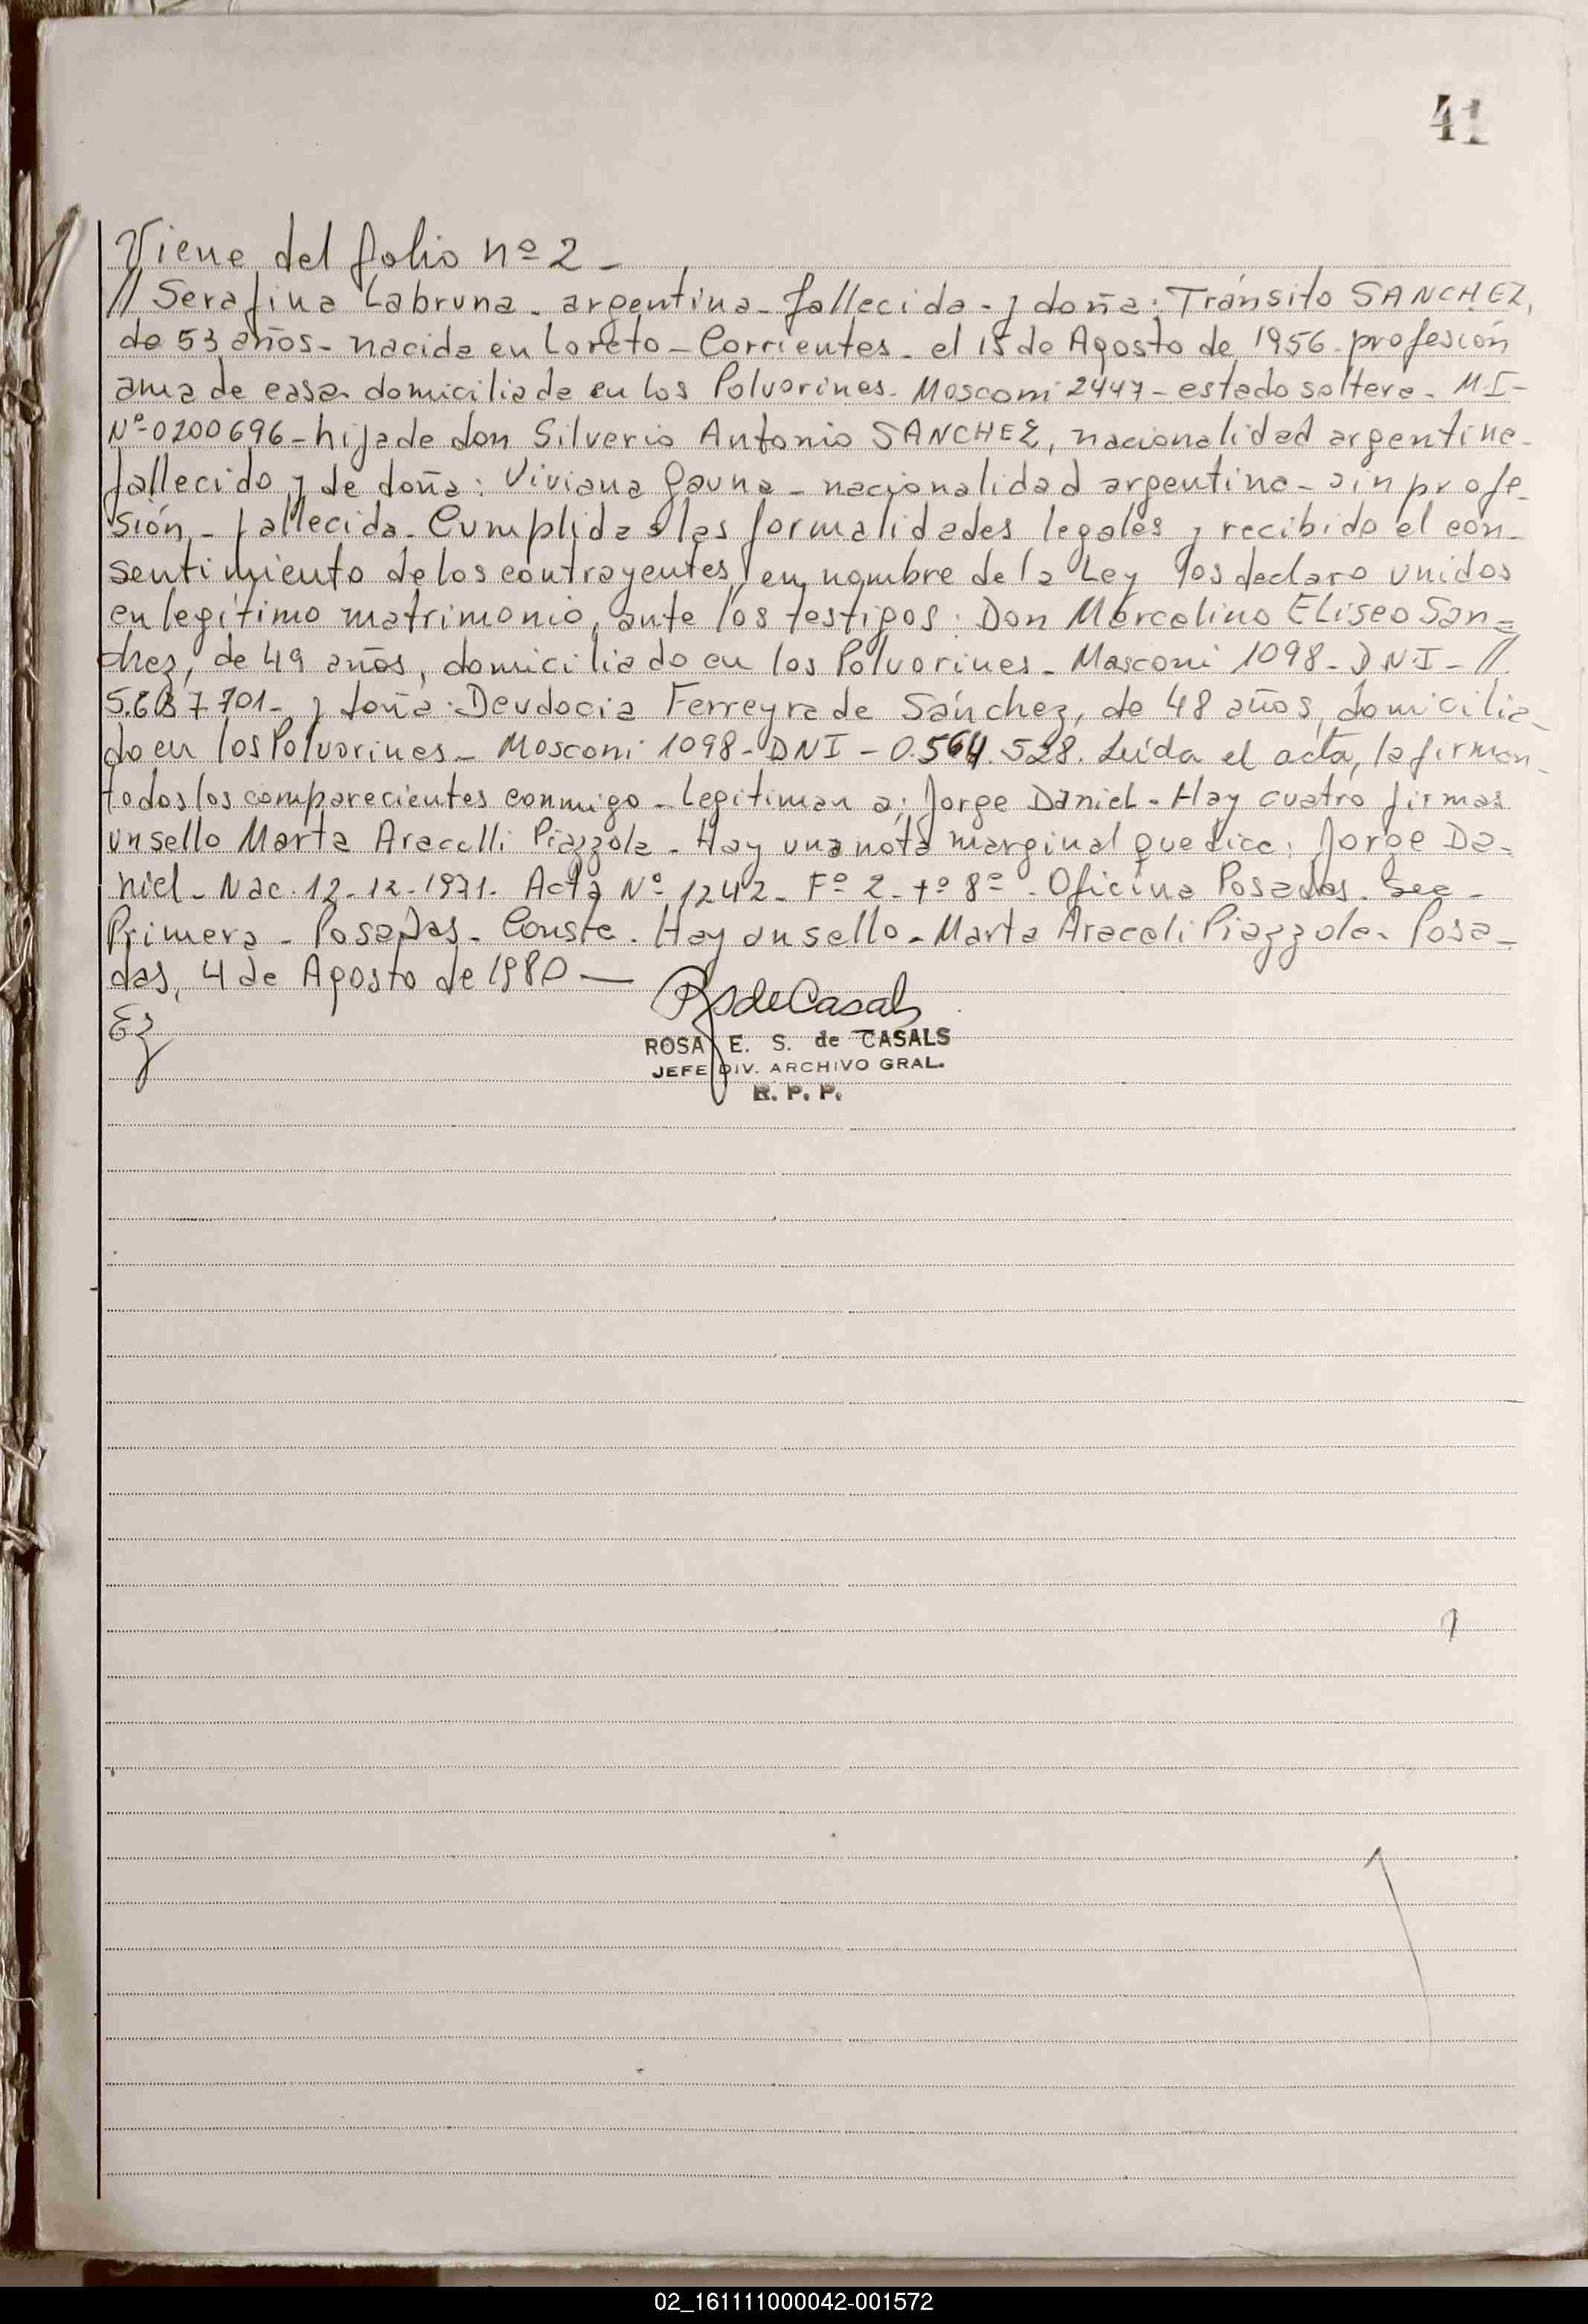 41
Viene del folio nº 2 -
// Serafina Labruna - argentina - fallecida - y doña: Tránsito SANCHEZ,
de 53 años - nacida en Loreto - Corrientes - el 15 de Agosto de 1956 - profesión
ama de casa - domiciliada en los Polvorines - Mosconi 2447 - estado soltera - M I -
Nº 0200696 - hija de don Silverio Antonio SANCHEZ, nacionalidad argentina -
fallecido y de doña: Viviana Gauna - nacionalidad argentina - sin profe-
sión - fallecida - Cumplidas las formalidades legales y recibido el con-
sentimiento de los contrayentes, en nombre de la Ley los declaro unidos
en legítimo matrimonio, ante los testigos: Don Marcelino Eliseo San=
chez, de 49 años, domiciliado en los Polvorines - Mosconi 1098 - D N I - //
701 - y doña: Deudocia Ferreyra de Sánchez, de 48 años, domicilia-
do en los Polvorines - Mosconi 1098 - DNI - 0.564.528. Leída el acta, la firman -
todos los comparecientes conmigo - Legitiman a: Jorge Daniel - Hay cuatro firmas
un sello Marta Aracelli Piazzola - Hay una nota marginal que dice: Jorge Da-
niel - Nac. 12-12-1971. Acta Nº 1242 - Fº 2 - tº 8º - Oficina Posadas - Sec -
Primera - Posadas - Conste - Hay un sello - Marta Araceli Piazzola - Posa-
das, 4 de Agosto de 1980 —
RSdeCasals
Ez
ROSA E. S. de CASALS
JEFE DIV. ARCHIVO GRAL.
R. P. P.
02_161111000042-001572